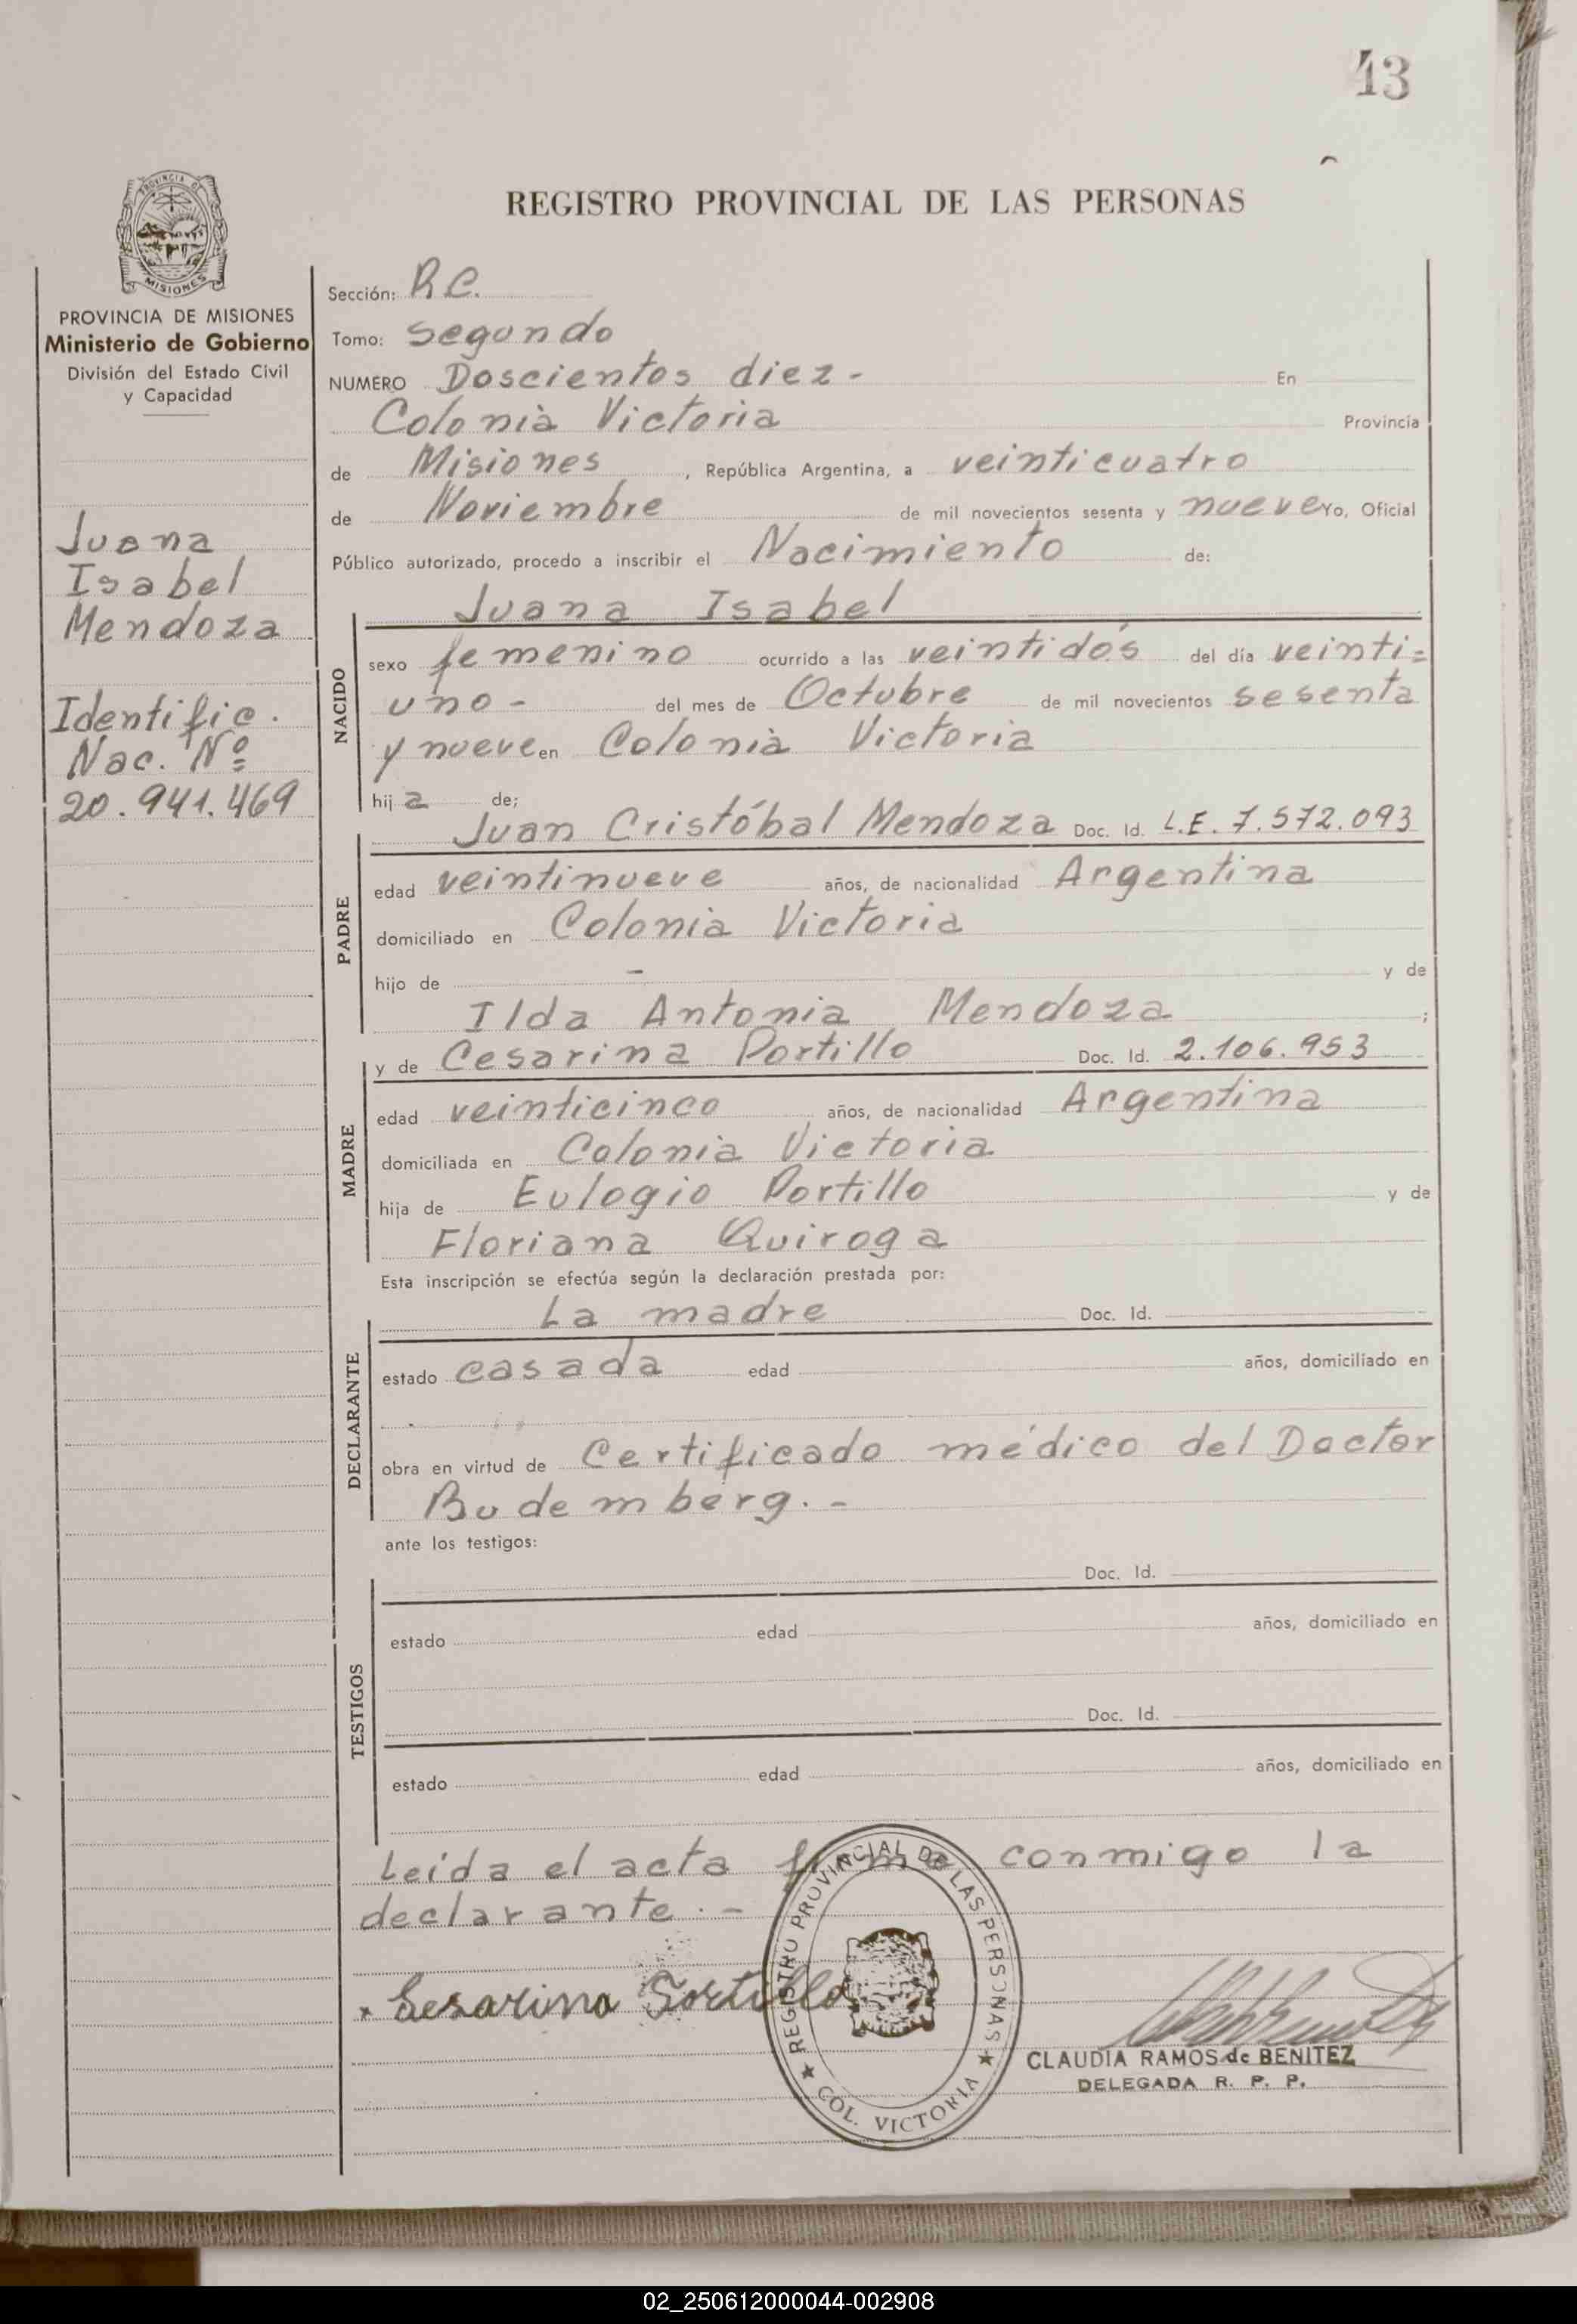 43
REGISTRO PROVINCIAL DE LAS PERSONAS
PROVINCIA DE MISIONES
PROVINCIA DE MISIONES
Ministerio de Gobierno
División del Estado Civil
y Capacidad
Juana
Isabel
Mendoza
Identific.
Nac. Nº
20.941.469
Sección: R.C.
Tomo: Segundo
NUMERO Doscientos diez - En
Colonia Victoria Provincia
de Misiones, República Argentina, a veinticuatro
de Noviembre de mil novecientos sesenta y nueve Yo, Oficial
Público autorizado, procedo a inscribir el Nacimiento de:
NACIDO
Juana Isabel
sexo femenino ocurrido a las veintidós del día veinti=
uno - del mes de Octubre de mil novecientos sesenta
y nueve en Colonia Victoria
hija de;
PADRE
Juan Cristóbal Mendoza Doc. Id. L.E. 7.572.093
edad veintinueve años, de nacionalidad Argentina
domiciliado en Colonia Victoria
hijo de - y de
Ilda Antonia Mendoza ;
MADRE
y de Cesarina Portillo Doc. Id. 2.106.953
edad veinticinco años, de nacionalidad Argentina
domiciliada en Colonia Victoria
hija de Eulogio Portillo y de
Floriana Quiroga
Esta inscripción se efectúa según la declaración prestada por:
DECLARANTE
La madre Doc. Id.
estado casada edad años, domiciliado en
obra en virtud de Certificado médico del Doctor
Budemberg. -
ante los testigos:
TESTIGOS
Doc. Id.
estado edad años, domiciliado en
Doc. Id.
estado edad años, domiciliado en
Leída el acta firma conmigo la
declarante. -
Cesarina Portillo
REGISTRO PROVINCIAL DE LAS PERSONAS
COL. VICTORIA
CLAUDIA RAMOS de BENITEZ
DELEGADA R. P. P.
02_250612000044-002908